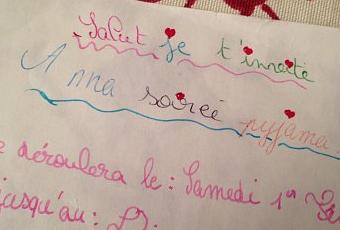 Salut je t'invite
A ma soirée pyjama.
déroulera le : Samedi 1er
jusqu'au :